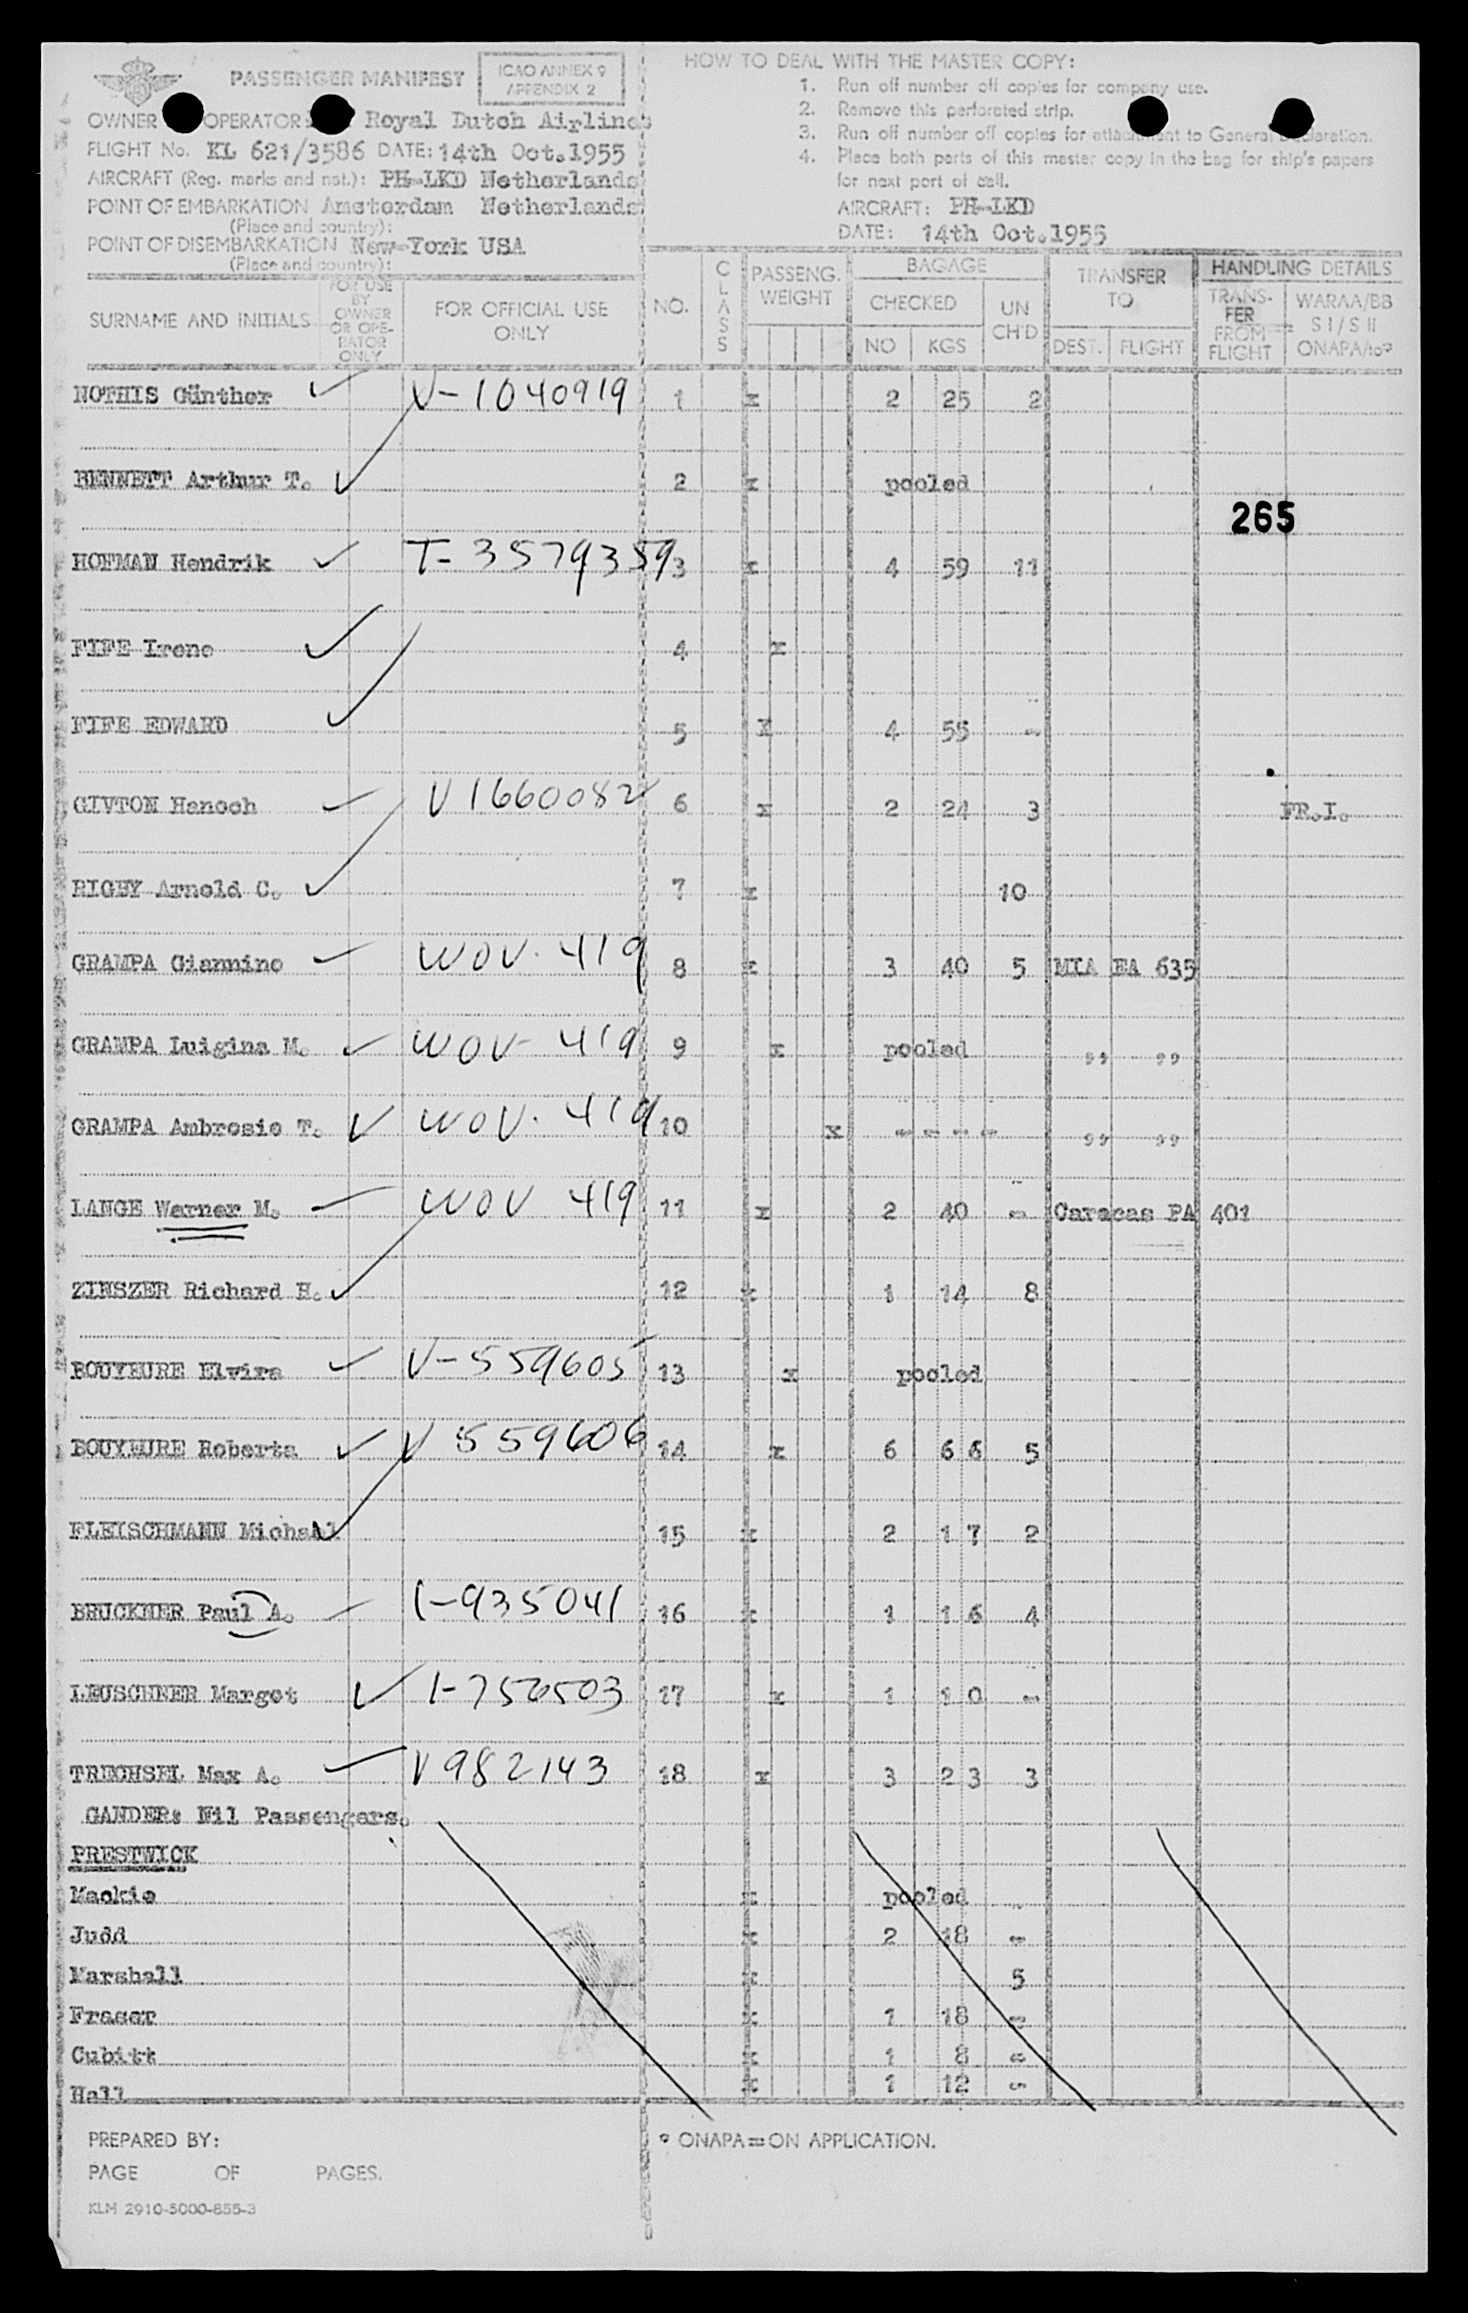 PASSENGER MANIFEST
ICAO ANNEX 9
APPENDIX 2
OWNER OPERATOR: Royal Dutch Airlines
FLIGHT No. KL 621/3586 DATE: 14th Oct.1955
AIRCRAFT (Reg. marks and nat.): PH-LKD Netherlands
POINT OF EMBARKATION Amsterdam Netherlands
(Place and country):
POINT OF DISEMBARKATION New-York USA
(Place and country):
HOW TO DEAL WITH THE MASTER COPY:
1. Run off number off copies for company use.
2. Remove this perforated strip.
3. Run off number off copies for attachment to General Declaration.
4. Place both parts of this master copy in the bag for ship's papers
for next port of call.
AIRCRAFT: PH-LKD
DATE: 14th Oct.1955
SURNAME AND INITIALS
FOR USE
BY
OWNER
OR OPE-
RATOR
ONLY
FOR OFFICIAL USE
ONLY
NO.
CLASS
PASSENG.
WEIGHT
BAGAGE
CHECKED
NO KGS
UN
CH'D
TRANSFER
TO
DEST. FLIGHT
HANDLING DETAILS
TRANS-
FER
FROM
FLIGHT
WARAA/BB
S I / S II
ONAPA/
NOTHIS Günther V-1040919 1 x 2 25 2
BENNETT Arthur T. 2 x pooled
265
HOFMAN Hendrik T-3579359 3 x 4 59 11
FIFE Irene 4 x
FIFE EDWARD 5 x 4 55 -
GIVTON Hanoch V1660082 6 x 2 24 3 FR.I.
RIGBY Arnold C. 7 x 10
GRAMPA Giannino WOV. 419 8 x 3 40 5 MIA EA 635
GRAMPA Luigina M. WOV- 419 9 x pooled ,, ,,
GRAMPA Ambrosio T. WOV. 419 10 x - - - - ,, ,,
LANGE Werner M. WOV 419 11 x 2 40 - Caracas PA 401
ZINSZER Richard H. 12 x 1 14 8
BOUYEURE Elvira V-559605 13 x pooled
BOUYEURE Roberta V 559606 14 x 6 66 5
FLEISCHMANN Michael 15 x 2 17 2
BRUCKNER Paul A. 1-935041 16 x 1 16 4
LEUSCHNER Margot 1-756503 17 x 1 10 -
TRECHSEL Max A. V982143 18 x 3 23 3
GANDER: Nil Passengers.
PRESTWICK
Mackie x pooled
Judd x 2 18 -
Marshall x 5
Fraser x 1 18 -
Cubitt x 1 8 -
Hall x 1 12 -
PREPARED BY:
PAGE OF PAGES.
KLM 2910-5000-855-3
º ONAPA = ON APPLICATION.